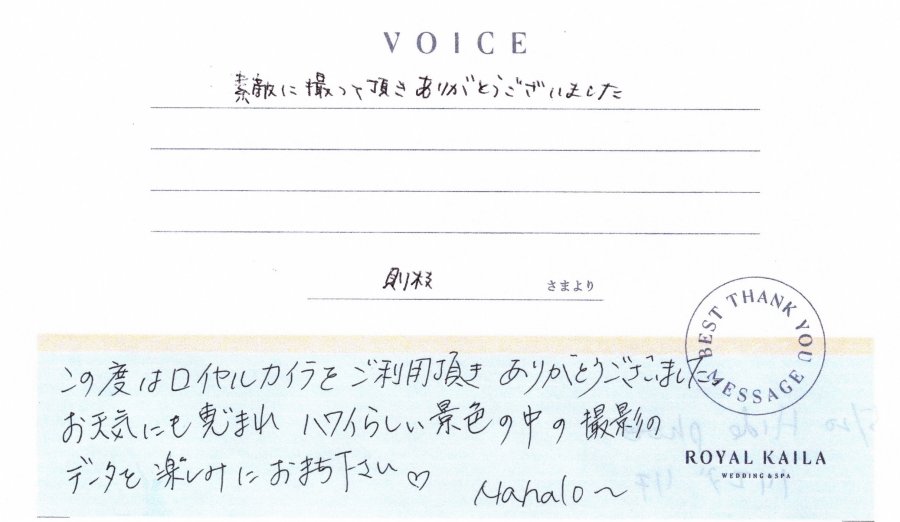 VOICE
素敵に撮って頂きありがとうございました
さまより
BEST THANK YOU MESSAGE
この度はロイヤルカイラをご利用頂きありがとうございました。
お天気にも恵まれ ハワイらしい景色の中の撮影の
データを楽しみにお待ち下さい♡
Mahalo〜
ROYAL KAILA
WEDDING & SPA